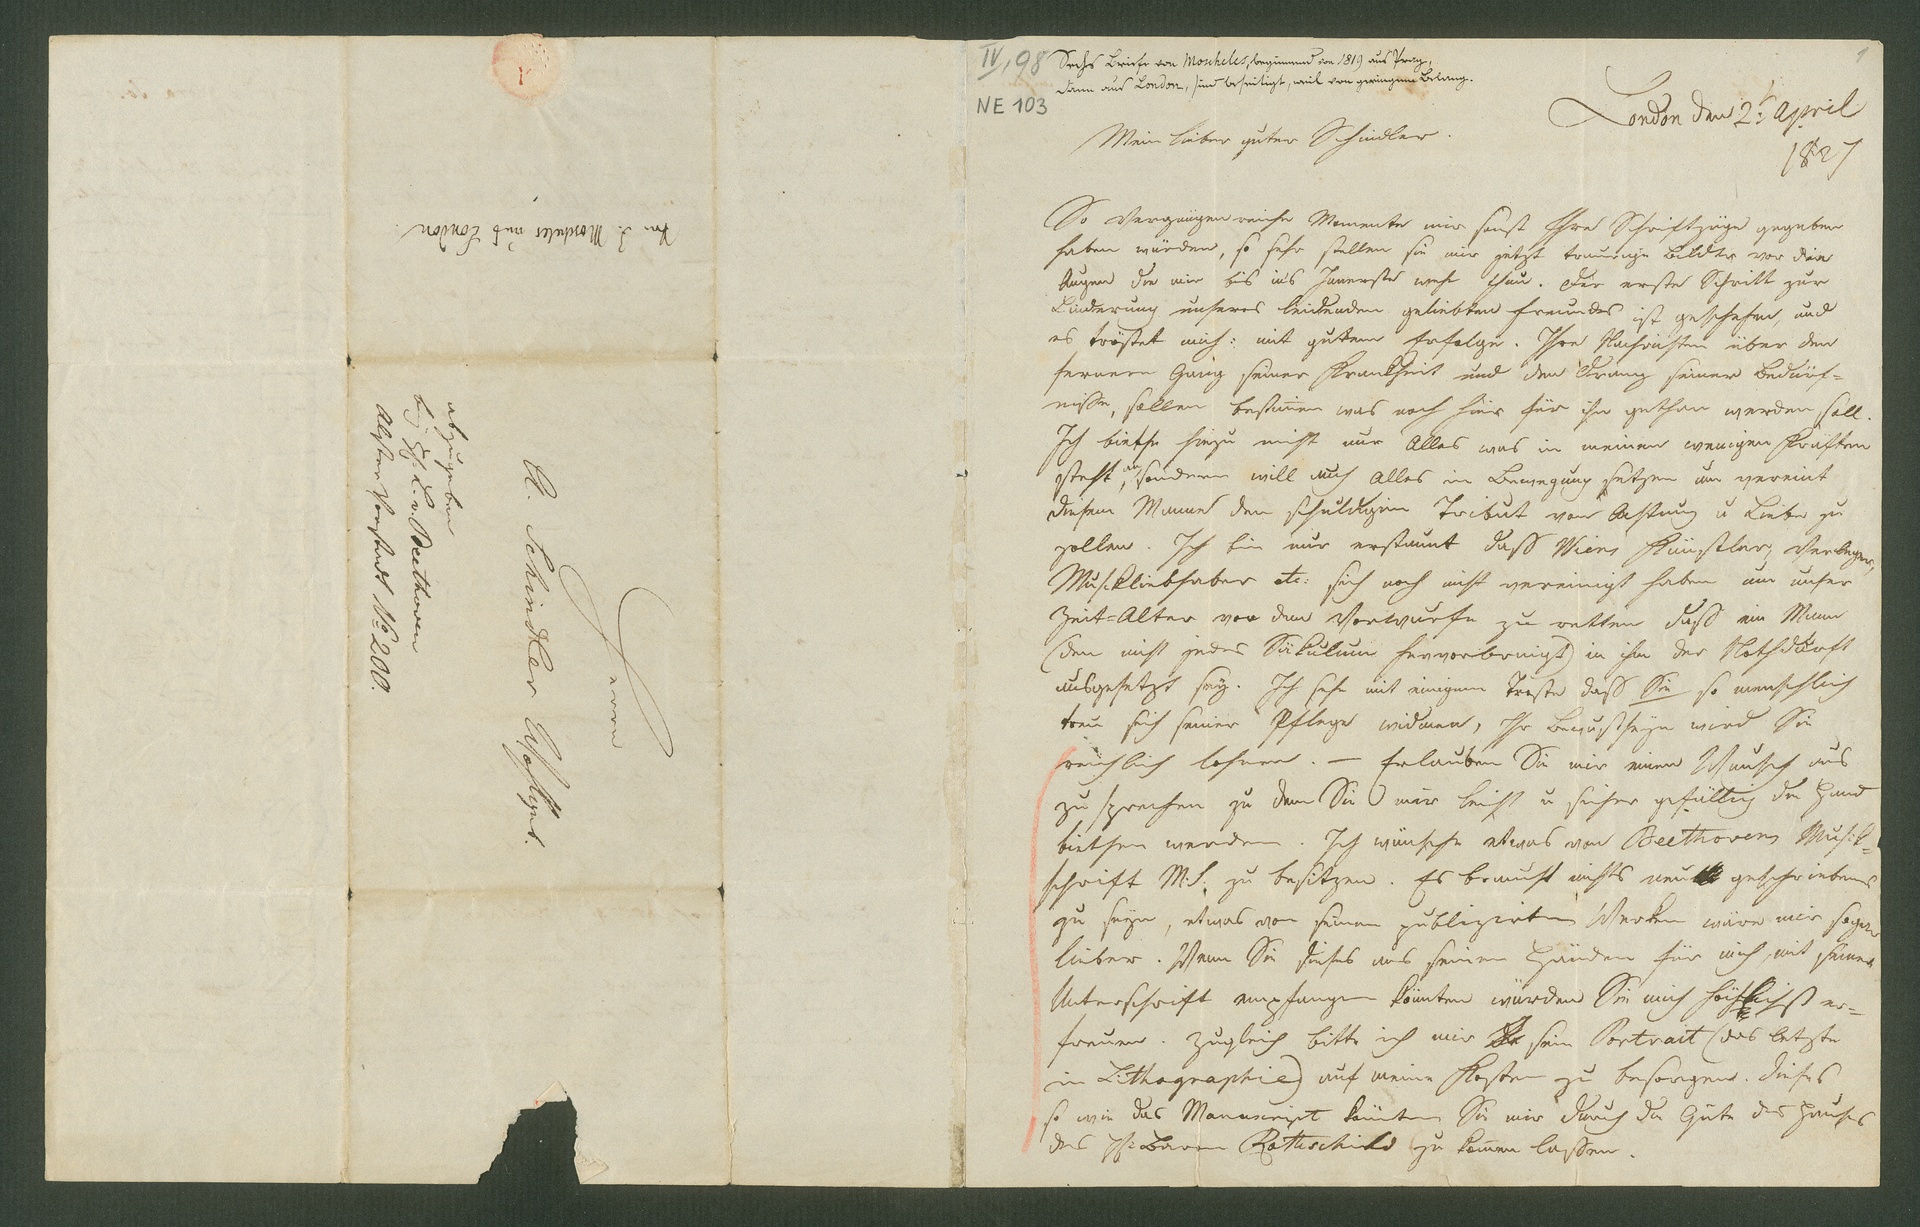 Von I. Moscheles aus London.
Herrn
A. Schindler Wohlgeb.
abzugeben
bey H: L. v. Beethoven
Alster Vorstadt No 200.
IV, 98
NE 103
Sechs Briefe von Moscheles, beginnend von 1819 aus Prag,
dann aus London, sind beseitigt, weil von geringem Belang.
1
London den 2t April
1827
Mein lieber guter Schindler.
So vergnügenreiche Momente mir sonst Ihre Schriftzüge gegeben
haben würden, so sehr stellen sie mir jetzt traurige Bilder vor die
Augen die mir bis in's Innerste weh thun. Der erste Schritt zur
Linderung unseres leidenden geliebten Freundes ist geschehen, und
es tröstet mich: mit gutem Erfolge. Ihre Nachrichten über den
fernern Gang seiner Krankheit und den Drang seiner Bedürf=
nisse, sollen bestimmen was noch hier für ihn gethan werden soll.
Ich biethe hiezu nicht nur Alles was in meinen wenigen Kräften
steht, an, sondern will auch Alles in Bewegung setzen um vereint
diesem Manne den schuldigen Tribut von Achtung u Liebe zu
zollen. Ich bin nur erstaunt dass Wiens Künstler, Verleger,
Musikliebhaber etc: sich noch nicht vereinigt haben um unser
Zeit=Alter vor dem Vorwurfe zu retten dass ein Mann
(den nicht jedes Säkulum hervorbringt) in ihm der Nothdurft
ausgesetzt sey. Ich sehe mit einigem Troste dass Sie so menschlich
treu sich seiner Pflege widmen, Ihr Bewustseyn wird Sie
reichlich lohnen. — Erlauben Sie mir einen Wunsch aus
zu sprechen zu dem Sie mir leicht u sicher gefällig die Hand
biethen werden. Ich wünsche etwas von Beethovens Musik=
schrift M.S. zu besitzen. Es braucht nichts neu geschriebenes
zu seyn, etwas von seinen publizirten Werken wäre mir sogar
lieber. Wenn Sie dieses aus seinen Händen für mich, mit seiner
Unterschrift empfangen könnten würden Sie mich höchlichst er=
freuen. Zugleich bitte ich mir sein Portrait (das letzte
in Lithographie) auf meine Kosten zu besorgen. Dieses
so wie das Manuscript könnten Sie mir durch die Güte des Hauses
des H: Baron Rothschild zu kommen lassen.